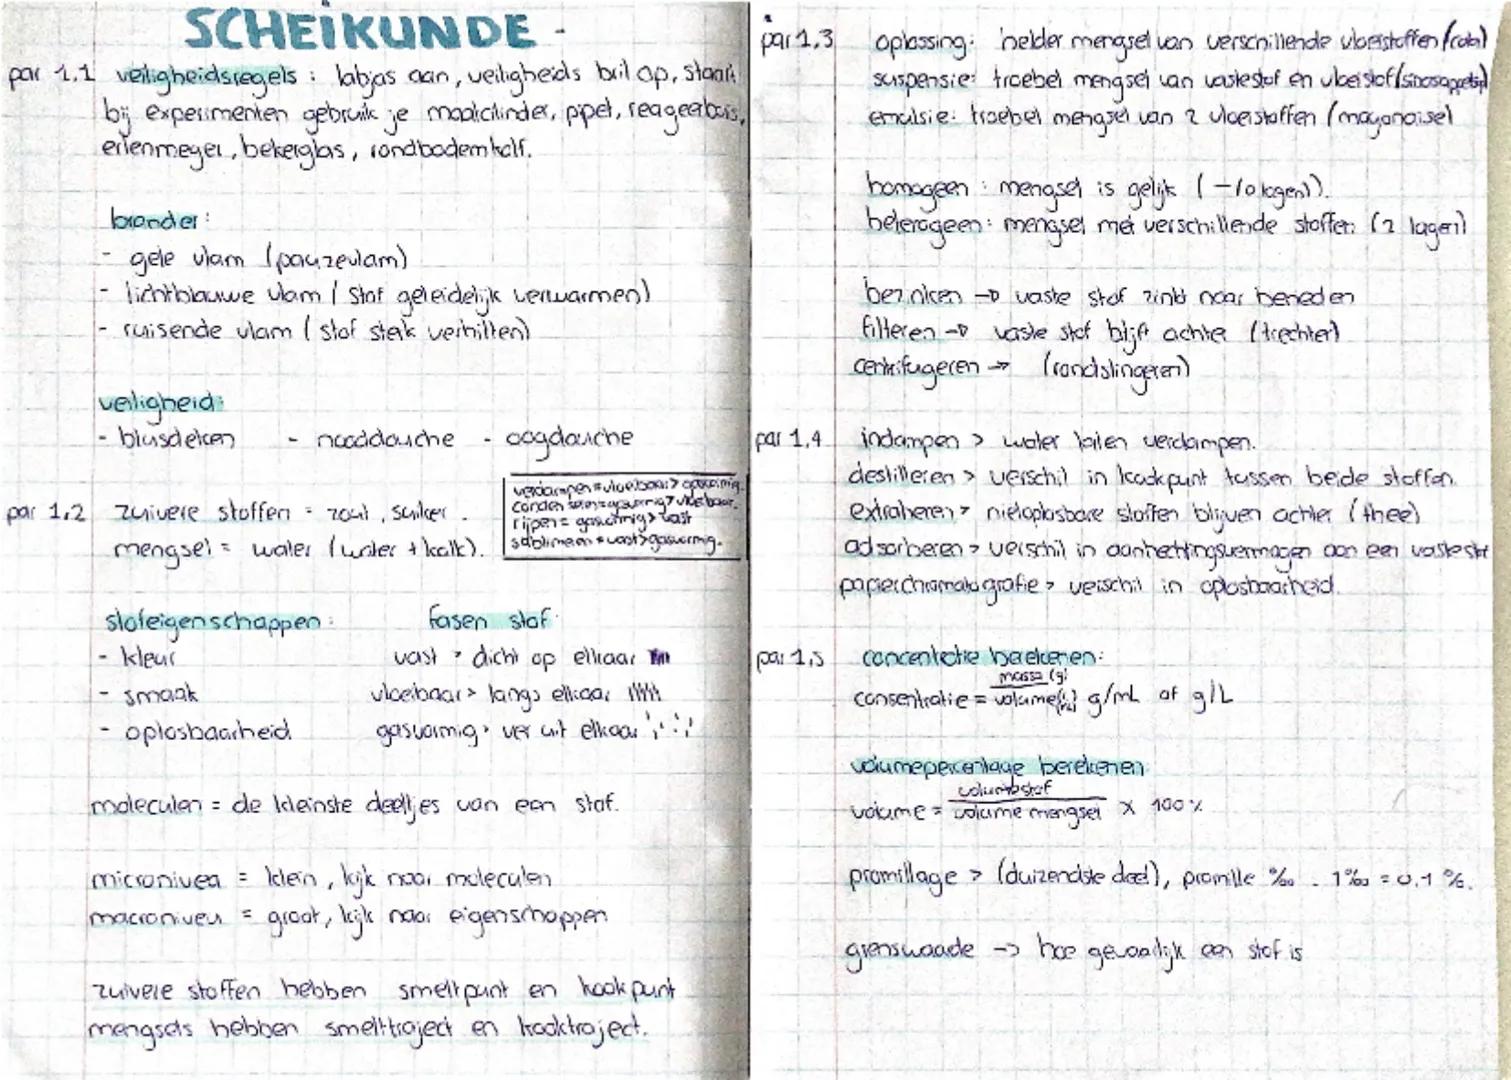 SCHEIKUNDE -
par 1.1 veiligheidsregels : labjas aan, veiligheids bril op, staart
bij experimenten gebruik je maatcilinder, pipet, reageerbuis,
erlenmeyer, bekerglas, rondbodemkolf.
brander:
- gele vlam (pauzevlam)
- lichtblauwe vlam ( stof geleidelijk verwarmen)
- ruisende vlam ( stof sterk verhitten)
veiligheid:
- blusdeken - nooddouche - oogdouche
verdampen = vloeibaar > gasvormig.
condenseren = gasvormig > vloeibaar.
rijpen = gasvormig > vast
sublimeren = vast > gasvormig.
par 1,2 zuivere stoffen = zout, suiker.
mengsel = water (water + kalk).
stofeigenschappen: fasen stof:
- kleur vast > dicht op elkaar
- smaak vloeibaar > langs elkaar
- oplosbaarheid gasvormig > ver uit elkaar
moleculen = de kleinste deeltjes van een stof.
micronivea = klein, kijk naar moleculen
macroniveu = groot, kijk naar eigenschappen
zuivere stoffen hebben smeltpunt en kookpunt
mengsels hebben smelttraject en kooktraject.
par 1,3 oplossing: helder mengsel van verschillende vloeistoffen (cola)
suspensie: troebel mengsel van vastestof en vloeistof
emulsie: troebel mengsel van 2 vloeistoffen (mayonaise)
homogeen : mengsel is gelijk
heterogeen: mengsel met verschillende stoffen (2 lagen)
bezinken → vaste stof zinkt naar beneden
filteren → vaste stof blijft achter (trechter)
centrifugeren → (rondslingeren)
par 1,4 indampen > water laten verdampen.
destilleren > verschil in kookpunt tussen beide stoffen
extraheren > nietoplosbare stoffen blijven achter (thee)
adsorberen > verschil in aanhechtingsvermogen aan een vaste stof
papierchromatografie > verschil in oplosbaarheid.
par 1,5 concentratie berekenen:
massa (g)
consentratie = volume g/mL of g/L
volumepercentage berekenen
volume stof
volume = volume mengsel x 100%
promillage > (duizendste deel), promille ‰ . 1‰ = 0,1 %.
grenswaade → hoe gevaarlijk een stof is